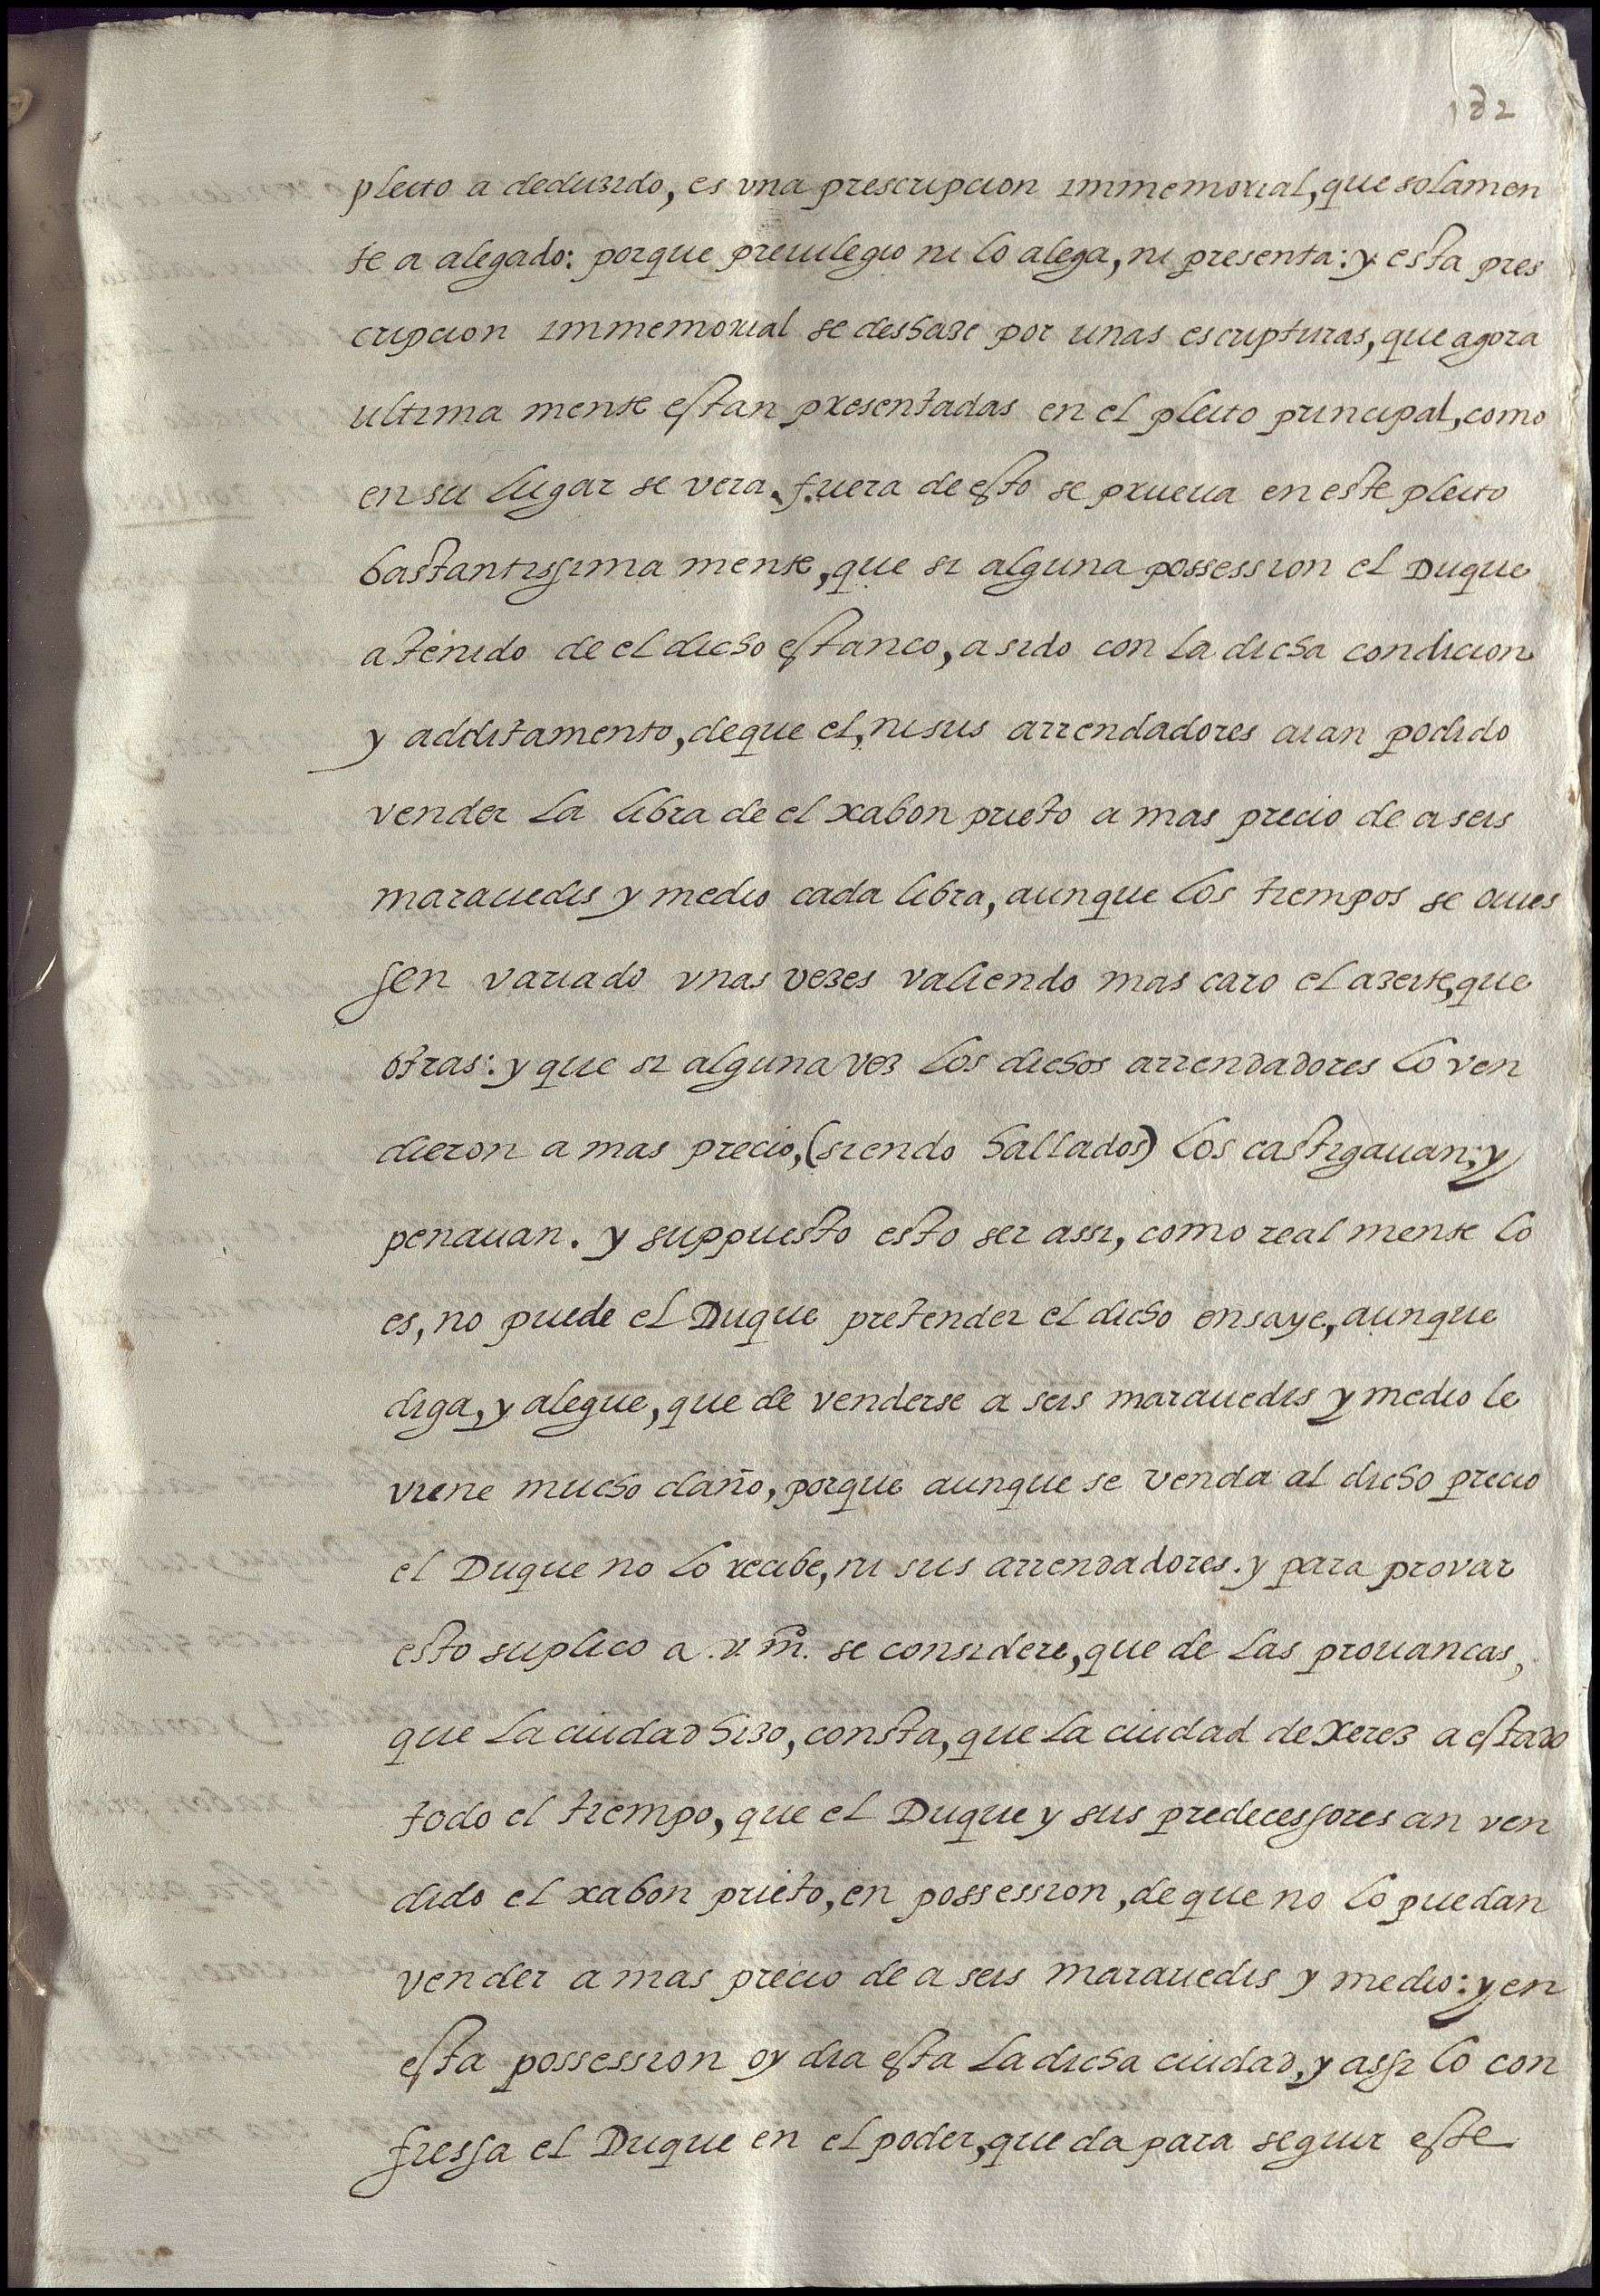 182
pleito a deduzido, es vna prescripcion immemorial, que solamen
te a alegado: porque preuilegio ni lo alega, ni presenta: y esta pres
cripcion immemorial se deshaze por unas escripturas, que agora
ultima mente estan presentadas en el pleito principal, como
en su lugar se vera. fuera de esto se prueua en este pleito
bastantissima mente, que si alguna possession el Duque
a tenido de el dicho estanco, a sido con la dicha condicion
y additamento, de que el, ni sus arrendadores aian podido
vender la libra de el xabon prieto a mas precio de a seis
marauedis y medio cada libra, aunque los tiempos se ouies
sen variado vnas vezes valiendo mas caro el azeite, que
otras: y que si alguna vez los dichos arrendadores lo ven
dieron a mas precio, (siendo hallados) los castigauan, y
penauan. y suppuesto esto ser assi, como real mente lo
es, no puede el Duque pretender el dicho ensaye, aunque
diga, y alegue, que de venderse a seis marauedis y medio le
viene mucho daño, porque aunque se venda al dicho precio
el Duque no lo recibe, ni sus arrendadores. y para provar
esto suplico a .v. m. se considere, que de las prouancas,
que la ciudad hizo, consta, que la ciudad de Xerez a estado
todo el tiempo, que el Duque y sus predecessores an ven
dido el xabon prieto, en possession, de que no lo puedan
vender a mas precio de a seis marauedis y medio: y en
esta possession oy dia esta la dicha ciudad, y assi lo con
fiessa el Duque en el poder, que da para seguir este